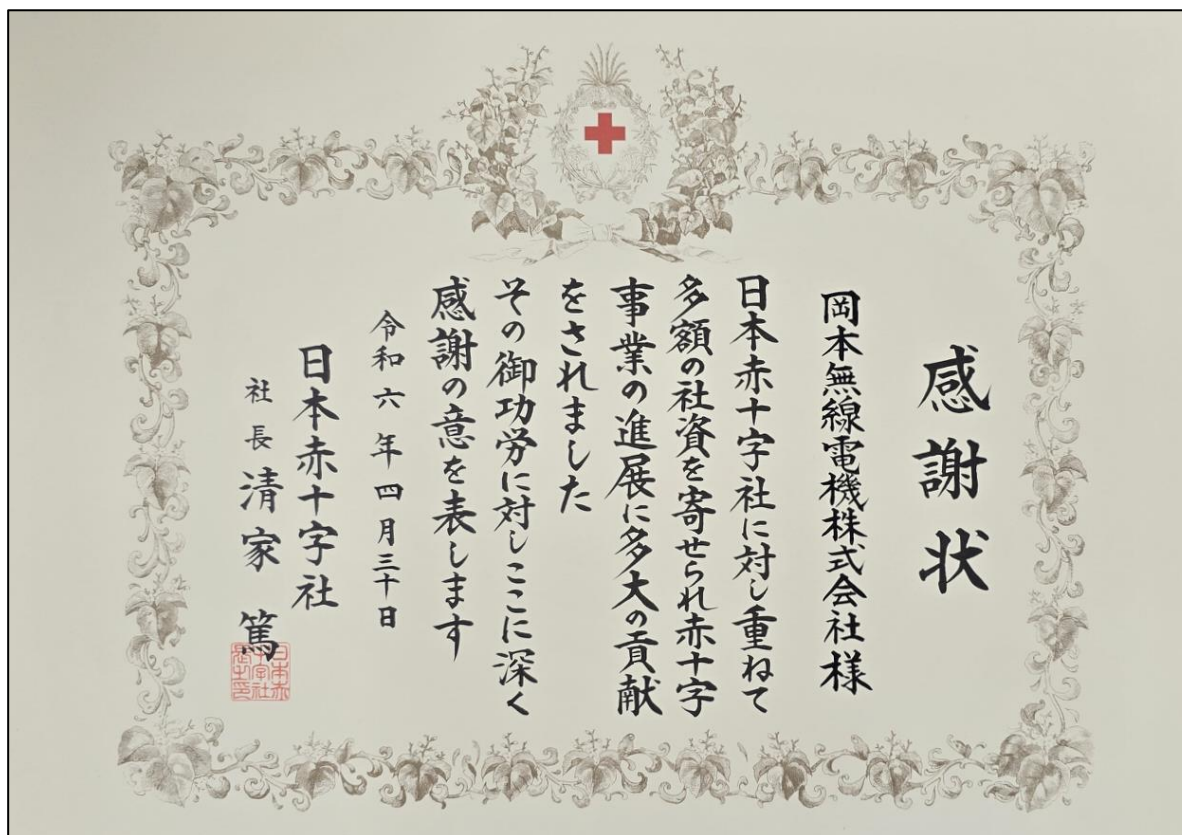 感謝状
岡本無線電機株式会社様
日本赤十字社に対し重ねて
多額の社資を寄せられ赤十字
事業の進展に多大の貢献
をされました
その御功労に対しここに深く
感謝の意を表します
令和六年四月三十日
日本赤十字社
社長 清家 篤
日本赤
十字社